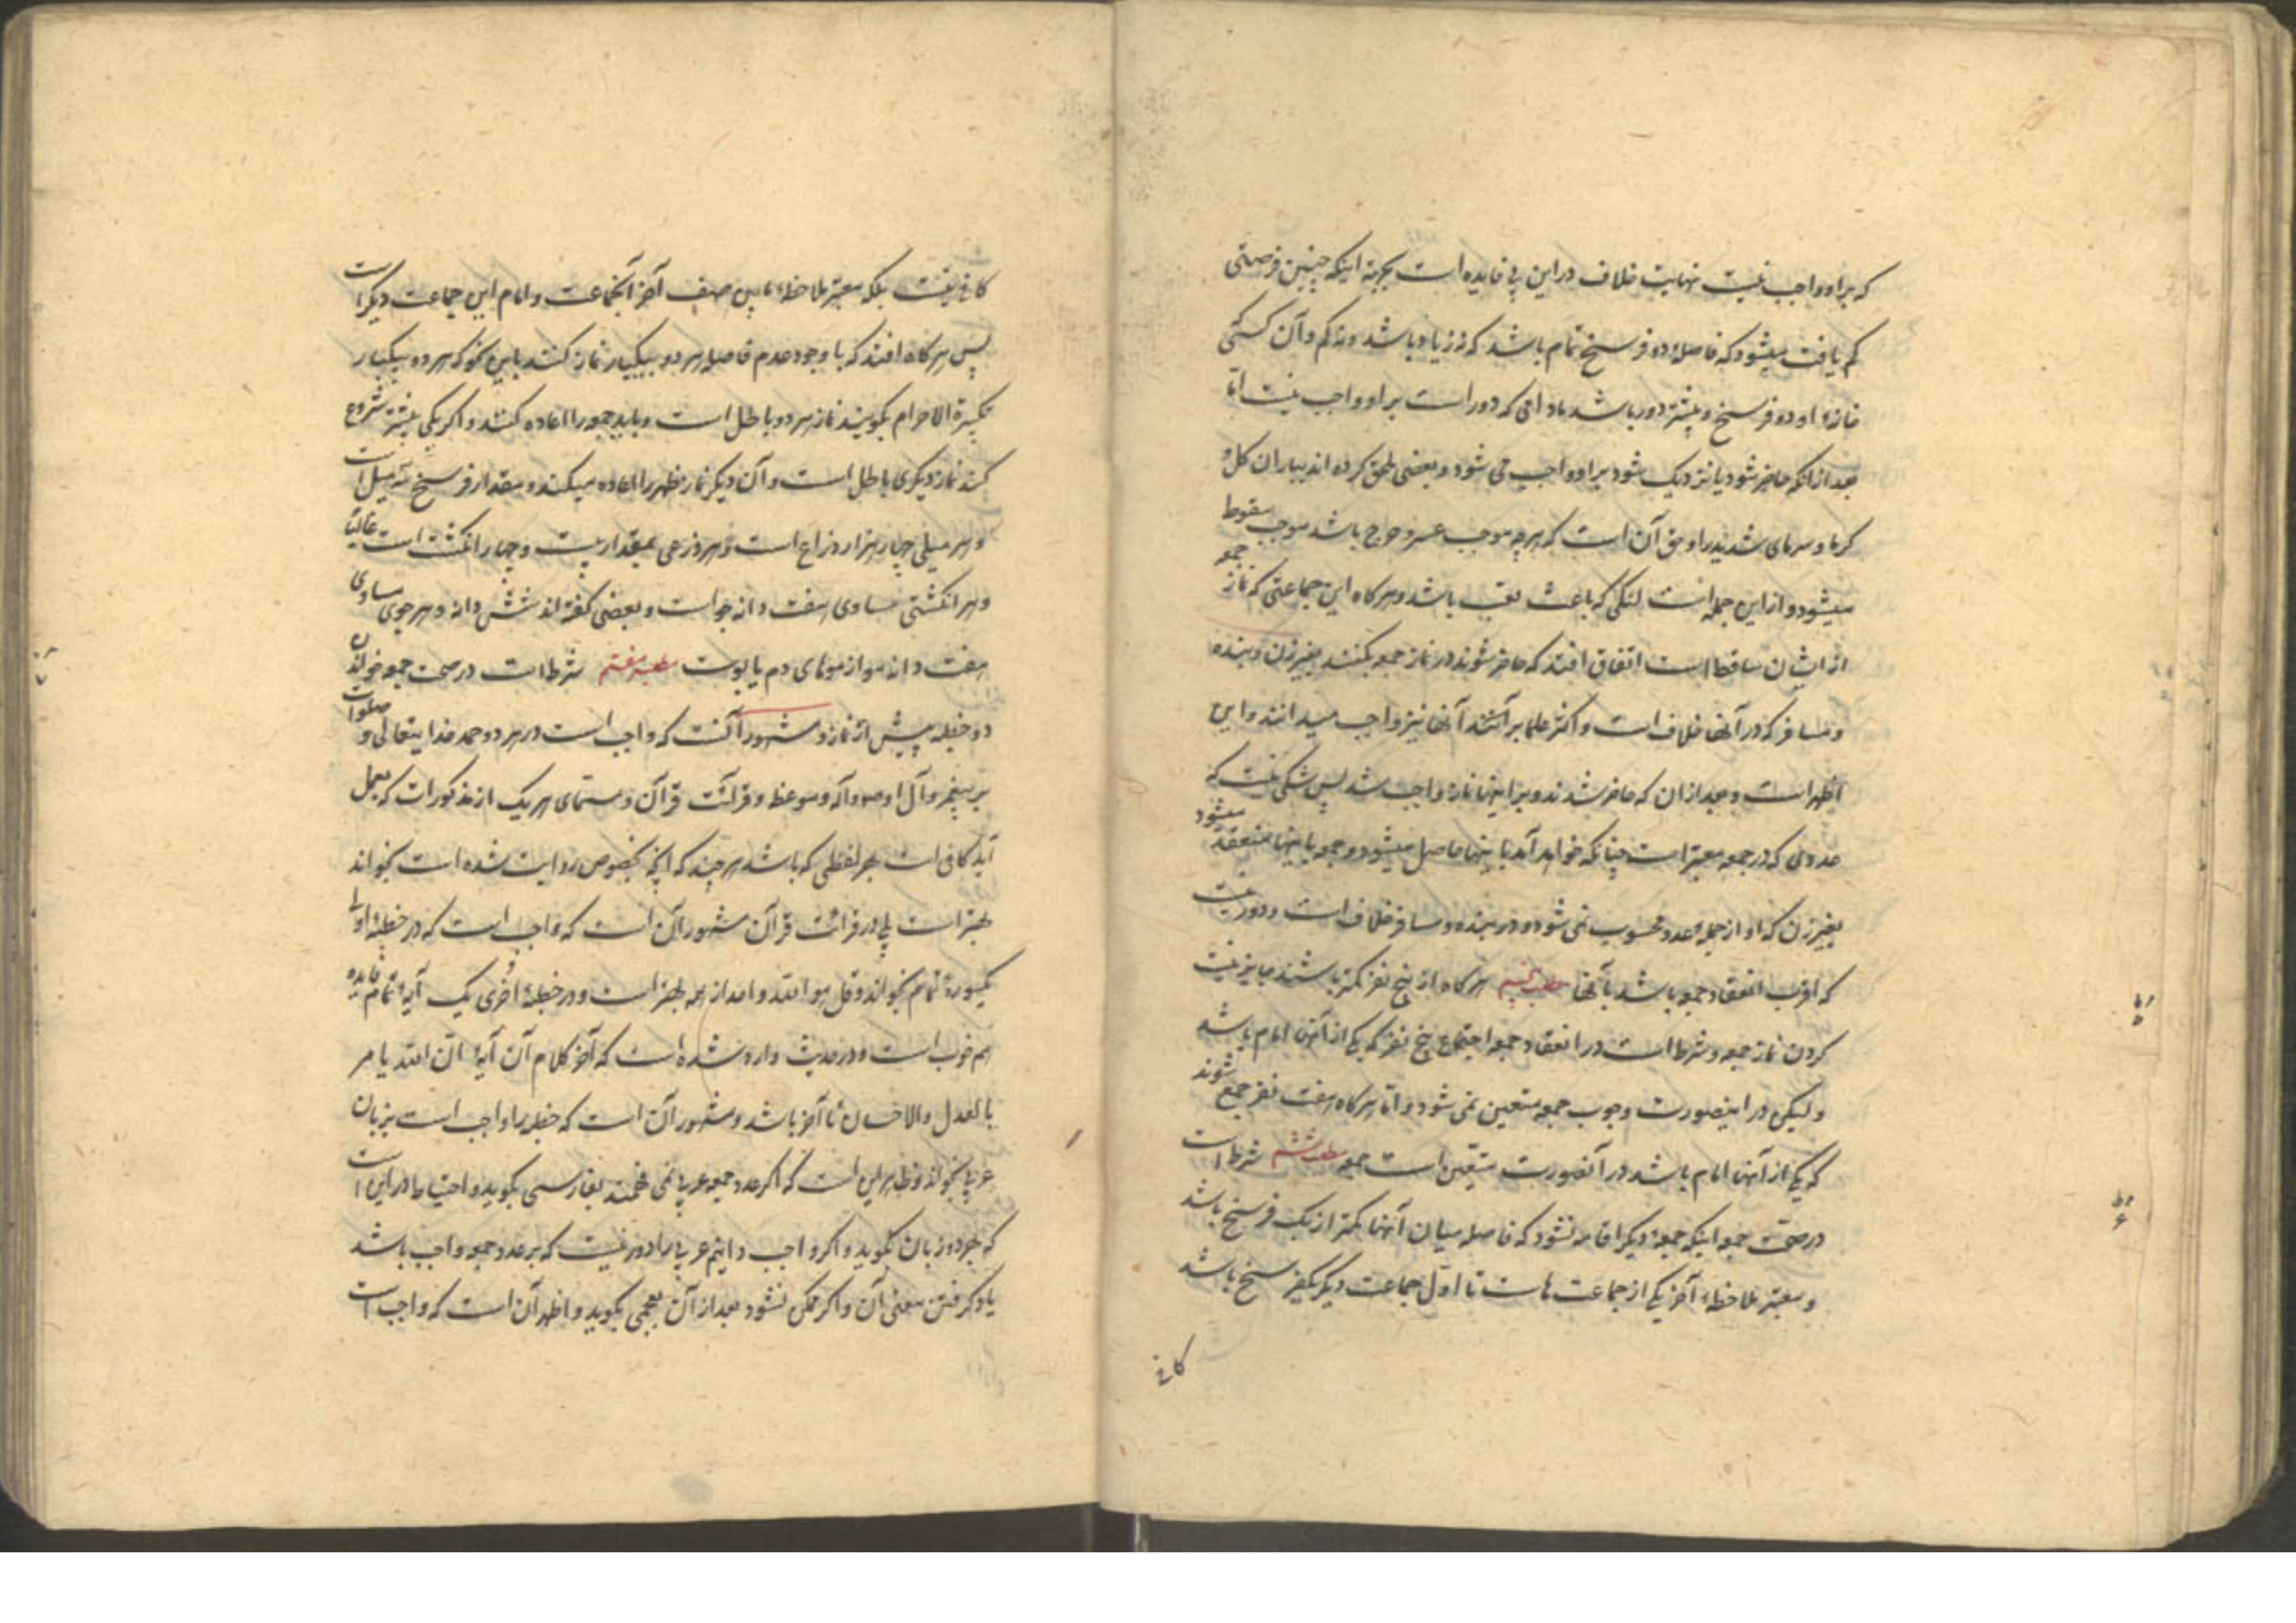 که بر او واجب نیست نهایت خلاف در این بی فایده است بجهة اینکه چنین فرصتی
کم یافت میشود که فاصله دو فرسخ تمام باشد که نه زیاد باشد و نه کم و آن کسی که
خانهٔ او دو فرسخ و بیشتر دور باشد مادامی که دور است بر او واجب نیست اما
بعد از آنکه حاضر شود یا نزدیک شود بر او واجب می شود و بعضی ملحق کرده اند بباران گل و
گرما و سرمای شدید را و حق آن است که هرچه موجب عسر و حرج باشد موجب سقوط
میشود و از این جمله است لنگی که باعث تعب باشد و هرگاه این جماعتی که نماز جمعه
از ایشان ساقط است اتفاق افتد که حاضر شوند در نماز جمعه بکنند بغیر زن و بنده
و مسافر که در آنها خلاف است و اکثر علما بر آنند آنها نیز واجب میدانند و این
اظهر است و بعد از آن که حاضر شدند و بر اینها نماز واجب شد پس شکی نیست که
عددی که در جمعه معتبر است چنانکه خواهد آمد باینها حاصل میشود و جمعه باینها منعقد میشود
بغیر زن که او از جملهٔ عدد محسوب نمی شود و در بنده و مسافر خلاف است و دور نیست
که اقرب انعقاد جمعه باشد بآنها مطلب پنجم هرگاه از پنج نفر کمتر باشند جایز نیست
کردن نماز جمعه و شرط است در انعقاد جمعه اجتماع پنج نفر که یکی از آنها امام باشد
و لیکن در اینصورت وجوب جمعه متعین نمی شود و اما هرگاه هفت نفر جمع شوند
که یکی از آنها امام باشد در آنصورت متعین است جمعه مطلب ششم شرط است
در صحت جمعه اینکه جمعهٔ دیگر اقامه نشود که فاصله میان آنها کمتر از یک فرسخ باشد
و معتبر ملاحظهٔ آخر یکی از جماعت هاست تا اول جماعت دیگر یکفرسخ باشد
کافی
کافی نیست بلکه معتبر ملاحظهٔ مابین صف آخر آنجماعت و امام این جماعت دیگر است
پس هرگاه افتد که با وجود عدم فاصله هر دو بیکبار نماز کنند باین نحو که هر دو بیکبار
تکبیرة الاحرام بگویند نماز هر دو باطل است و باید جمعه را اعاده کنند و اگر یکی پیشتر شروع
کند نماز دیگری باطل است و آن دیگر نماز ظهر را اعاده میکند و مقدار فرسخ سه میل است
و هر میلی چهار هزار ذراع است و هر ذرعی بمقدار بیست و چهار انگشت است غالبا
و هر انگشتی مساوی هفت دانه جو است و بعضی گفته اند شش دانه و هر جوی مساوی
هفت دانه مو از موهای دم یابوست مطلب هفتم شرط است در صحت جمعه خواندن
دو خطبه پیش از نماز و مشهور آنست که واجب است در هر دو حمد خدایتعالی و صلوات
بر پیغمبر و آل او و موعظه و قرائت قرآن و مسمای هر یک از مذکورات که بعمل
آید کافی است بهر لفظی که باشد هر چند که آنچه بخصوص روایت شده است بخواند
بهتر است بلی در قرائت قرآن مشهور آن است که واجب است که در خطبهٔ اولی
یکسورهٔ تمام بخواند و قل هو الله و احد از همه بهتر است و در خطبهٔ اخری یک آیهٔ تمام فایده
هم خوب است و در حدیث وارد شده است که آخر کلام آن آیهٔ ان الله یامر
بالعدل والاحسان تا آخر باشد و مشهور آن است که خطبه را واجب است بزبان
عربی بخواند و ظاهر این است که اگر عدد جمعه عربی نمی فهمند بفارسی بگوید و احتیاط در این است
که بهر دو زبان بگوید و اگر واجب دانیم عربی را دور نیست که بر عدد جمعه واجب باشد
یاد گرفتن معنی آن و اگر ممکن نشود بعد از آن بعجمی بگوید و اظهر آن است که واجب است